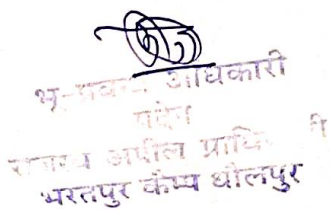 भू-प्रबन्ध अधिकारी
पदेन
राजस्व अपील प्राधिकारी
भरतपुर कैम्प धौलपुर